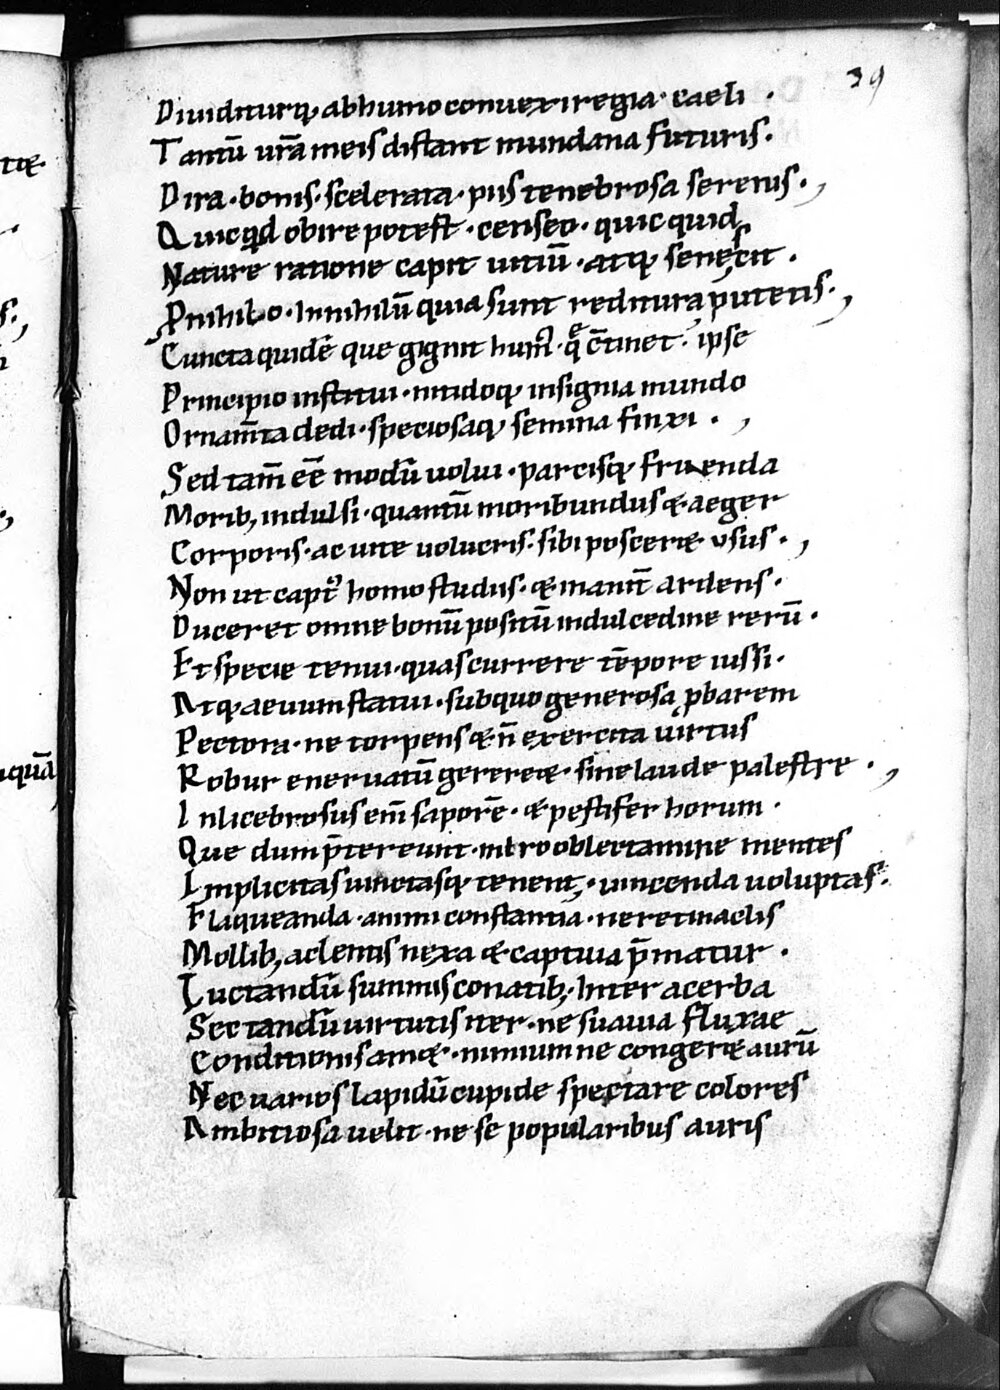 39
Diuiditurq; abhumo conuexi regia· caeli ·
Tantū urā meis distant mundana futuris·
Dira·bonis·scelerata·piis tenebrosa serenis·,
Quicqd obire potest·censeo·quicquid
Nature ratione capit uitiū·atq; senescit ·
Pnihilo·Innihilū quia sunt reditura putetis·,
Cuncta quidē que gignit hum̄·q̄ c̄tinet· ipse
Principio institui·nitidoq; insignia mundo
Ornam̄ta dedi·speciosaq; semina finxi · ,
Sed tam̄ eē modū uolui·parcisq; fruenda
Morib; indulsi·quantū moribundus & aeger
Corporis·ac uite uolucris·sibi posceret usus·,
Non ut capt᷒ homo studiis·& inanit̄ ardens·
Duceret omne bonū positū indulcedine rerū·
Et specie tenui·quas currere tēpore iussi·
Atq; aeuum statui·subquo generosa ꝓbarem
Pectora·ne torpens & n̄ exercita uirtus
Robur eneruatū gereret·sine laude palestre·,
Inlicebrosus eni̅ saporē·& pestifer horum·
Que dum p̄tereunt·intro oblectamine mentes
Implicitas uinctasq; tenent,·uincenda uoluptas·
Flaqueanda·animi constantia·ne retinaclis
Mollib; aclentis nexa & captiua p̄matur ·
Luctandū summis conatib;·Inter acerba
Sectandū uirtutis iter·ne suauia fluxae
Conditionis amet·nimium ne congeret aurū
Nec uarios lapidū cupide spectare colores
Ambitiosa uelit·ne se popularibus auris